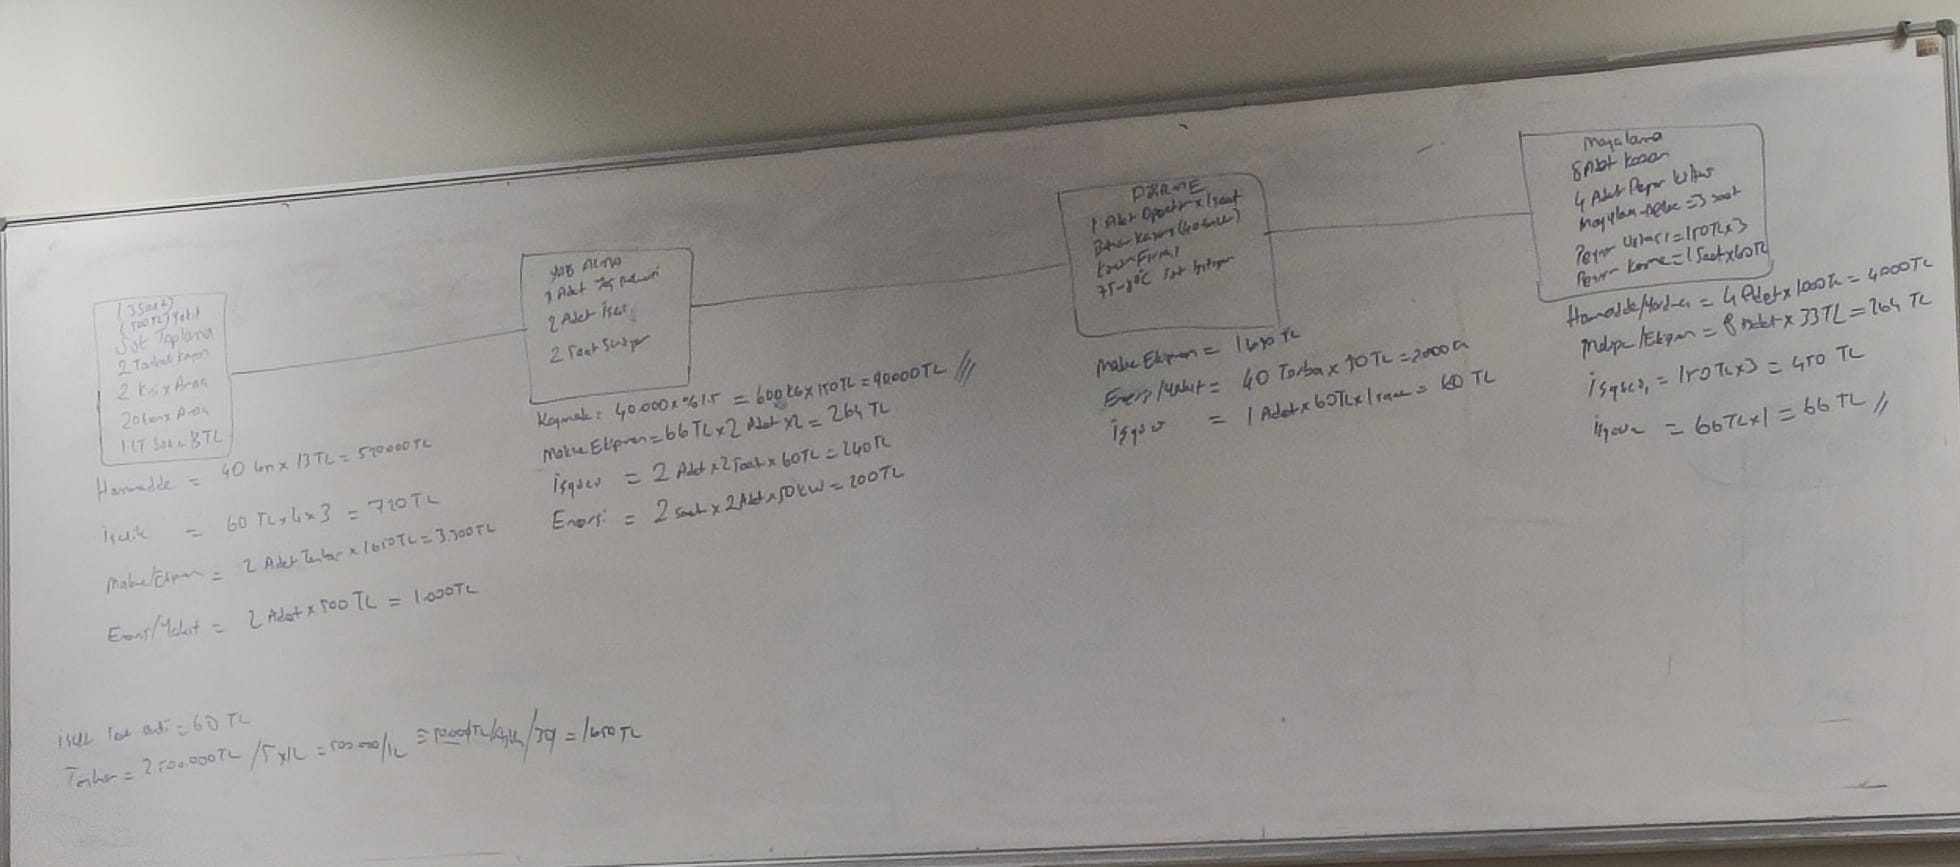 (3 Saat)
(500 TL) Yakıt
Süt Toplama
2 Tanker Kamyon
2 Kişi x Araç
20 ton x Araç
1 LT Süt = 13 TL
Hammadde = 40 ton x 13 TL = 520000 TL
İşçilik = 60 TL x 4 x 3 = 720 TL
Makine/Ekipman = 2 Adet Tanker x 1650 TL = 3.300 TL
Enerji/Yakıt = 2 Adet x 500 TL = 1.000 TL
İşçilik Saat = 60 TL
Tanker = 2.500.000 TL / 5 yıl = 500.000/12 = 50000 TL/Aylık /30 = 1650 TL
YAĞ ALMA
2 Adet Yağ Makinesi
2 Adet İşçi
2 Saat Sürüyor
Kaymak = 40.000 x %1.5 = 600 kg x 150 TL = 90000 TL
Makine Ekipman = 66 TL x 2 Adet x 2 = 264 TL
İşgücü = 2 Adet x 2 Saat x 60 TL = 240 TL
Enerji = 2 Saat x 2 Adet x 50 kW = 200 TL
PİŞİRME
1 Adet Operatör x 1 Saat
Buhar Kazanı
75-80°C Süt
Makine Ekipman = 1650 TL
Enerji/Yakıt = 40 Torba x 50 TL = 2000 TL
İşgücü = 1 Adet x 60 TL x 1 saat = 60 TL
Mayalama
8 Adet Kazan
4 Adet Peynir
Mayalama = 3 saat
Peynir Ustası = 150 TL x 3
Peynir = 1 Saat x 60 TL
Hammadde = 4 Adet x 1000 TL = 4000 TL
Makine/Ekipman = 8 Adet x 33 TL = 264 TL
İşgücü = 150 TL x 3 = 450 TL
İşgücü = 66 TL x 1 = 66 TL